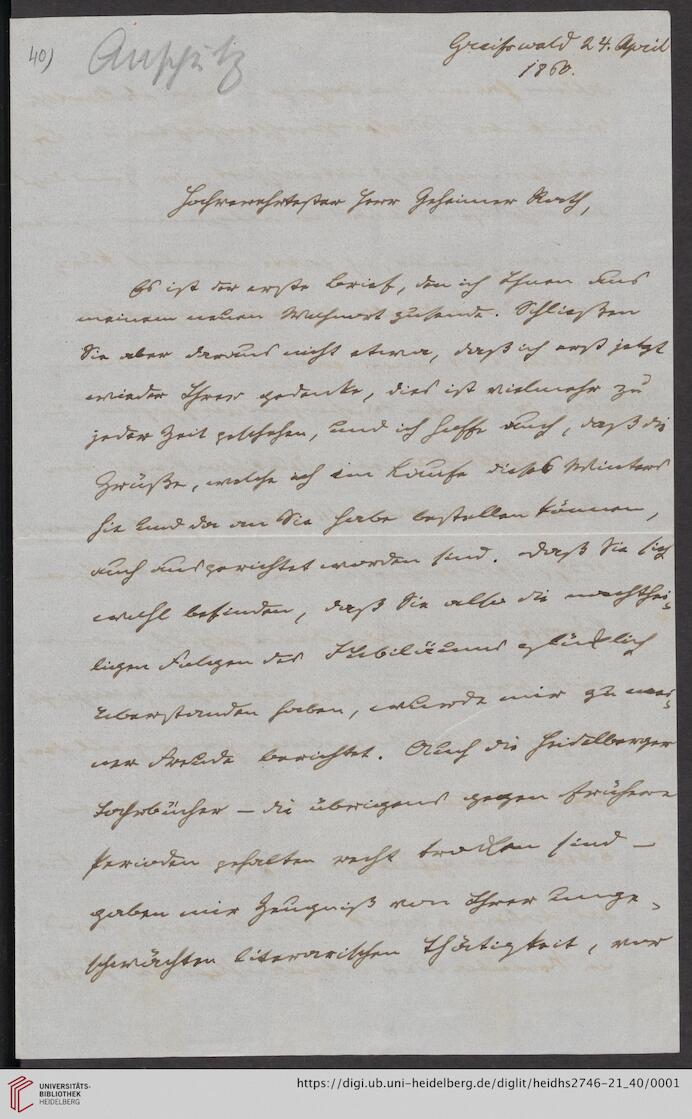 40)
Anschütz
Greifswald 24. April
1860.
Hochverehrtester Herr Geheimer Rath,
Es ist der erste Brief, den ich Ihnen aus
meinem neuen Wohnort zusende. Schließen
Sie aber daraus nicht etwa, daß ich erst jetzt
wieder Ihrer gedenke, dies ist vielmehr zu
jeder Zeit geschehen, und ich hoffe auch, daß die
Grüße, welche ich im Laufe dieses Winters
hie und da an Sie habe bestellen können,
auch ausgerichtet worden sind. Daß Sie sich
wohl befinden, daß Sie also die nachthei-
ligen Folgen des Jubiläums glücklich
überstanden haben, wurde mir zu mei-
ner Freude berichtet. Auch die Heidelberger
Jahrbücher – die übrigens gegen frühere
Perioden gehalten recht trocken sind –
gaben mir Zeugniß von Ihrer unge-
schwächten literarischen Thätigkeit, vor
UNIVERSITÄTS-
BIBLIOTHEK
HEIDELBERG
https://digi.ub.uni-heidelberg.de/diglit/heidhs2746-21_40/0001